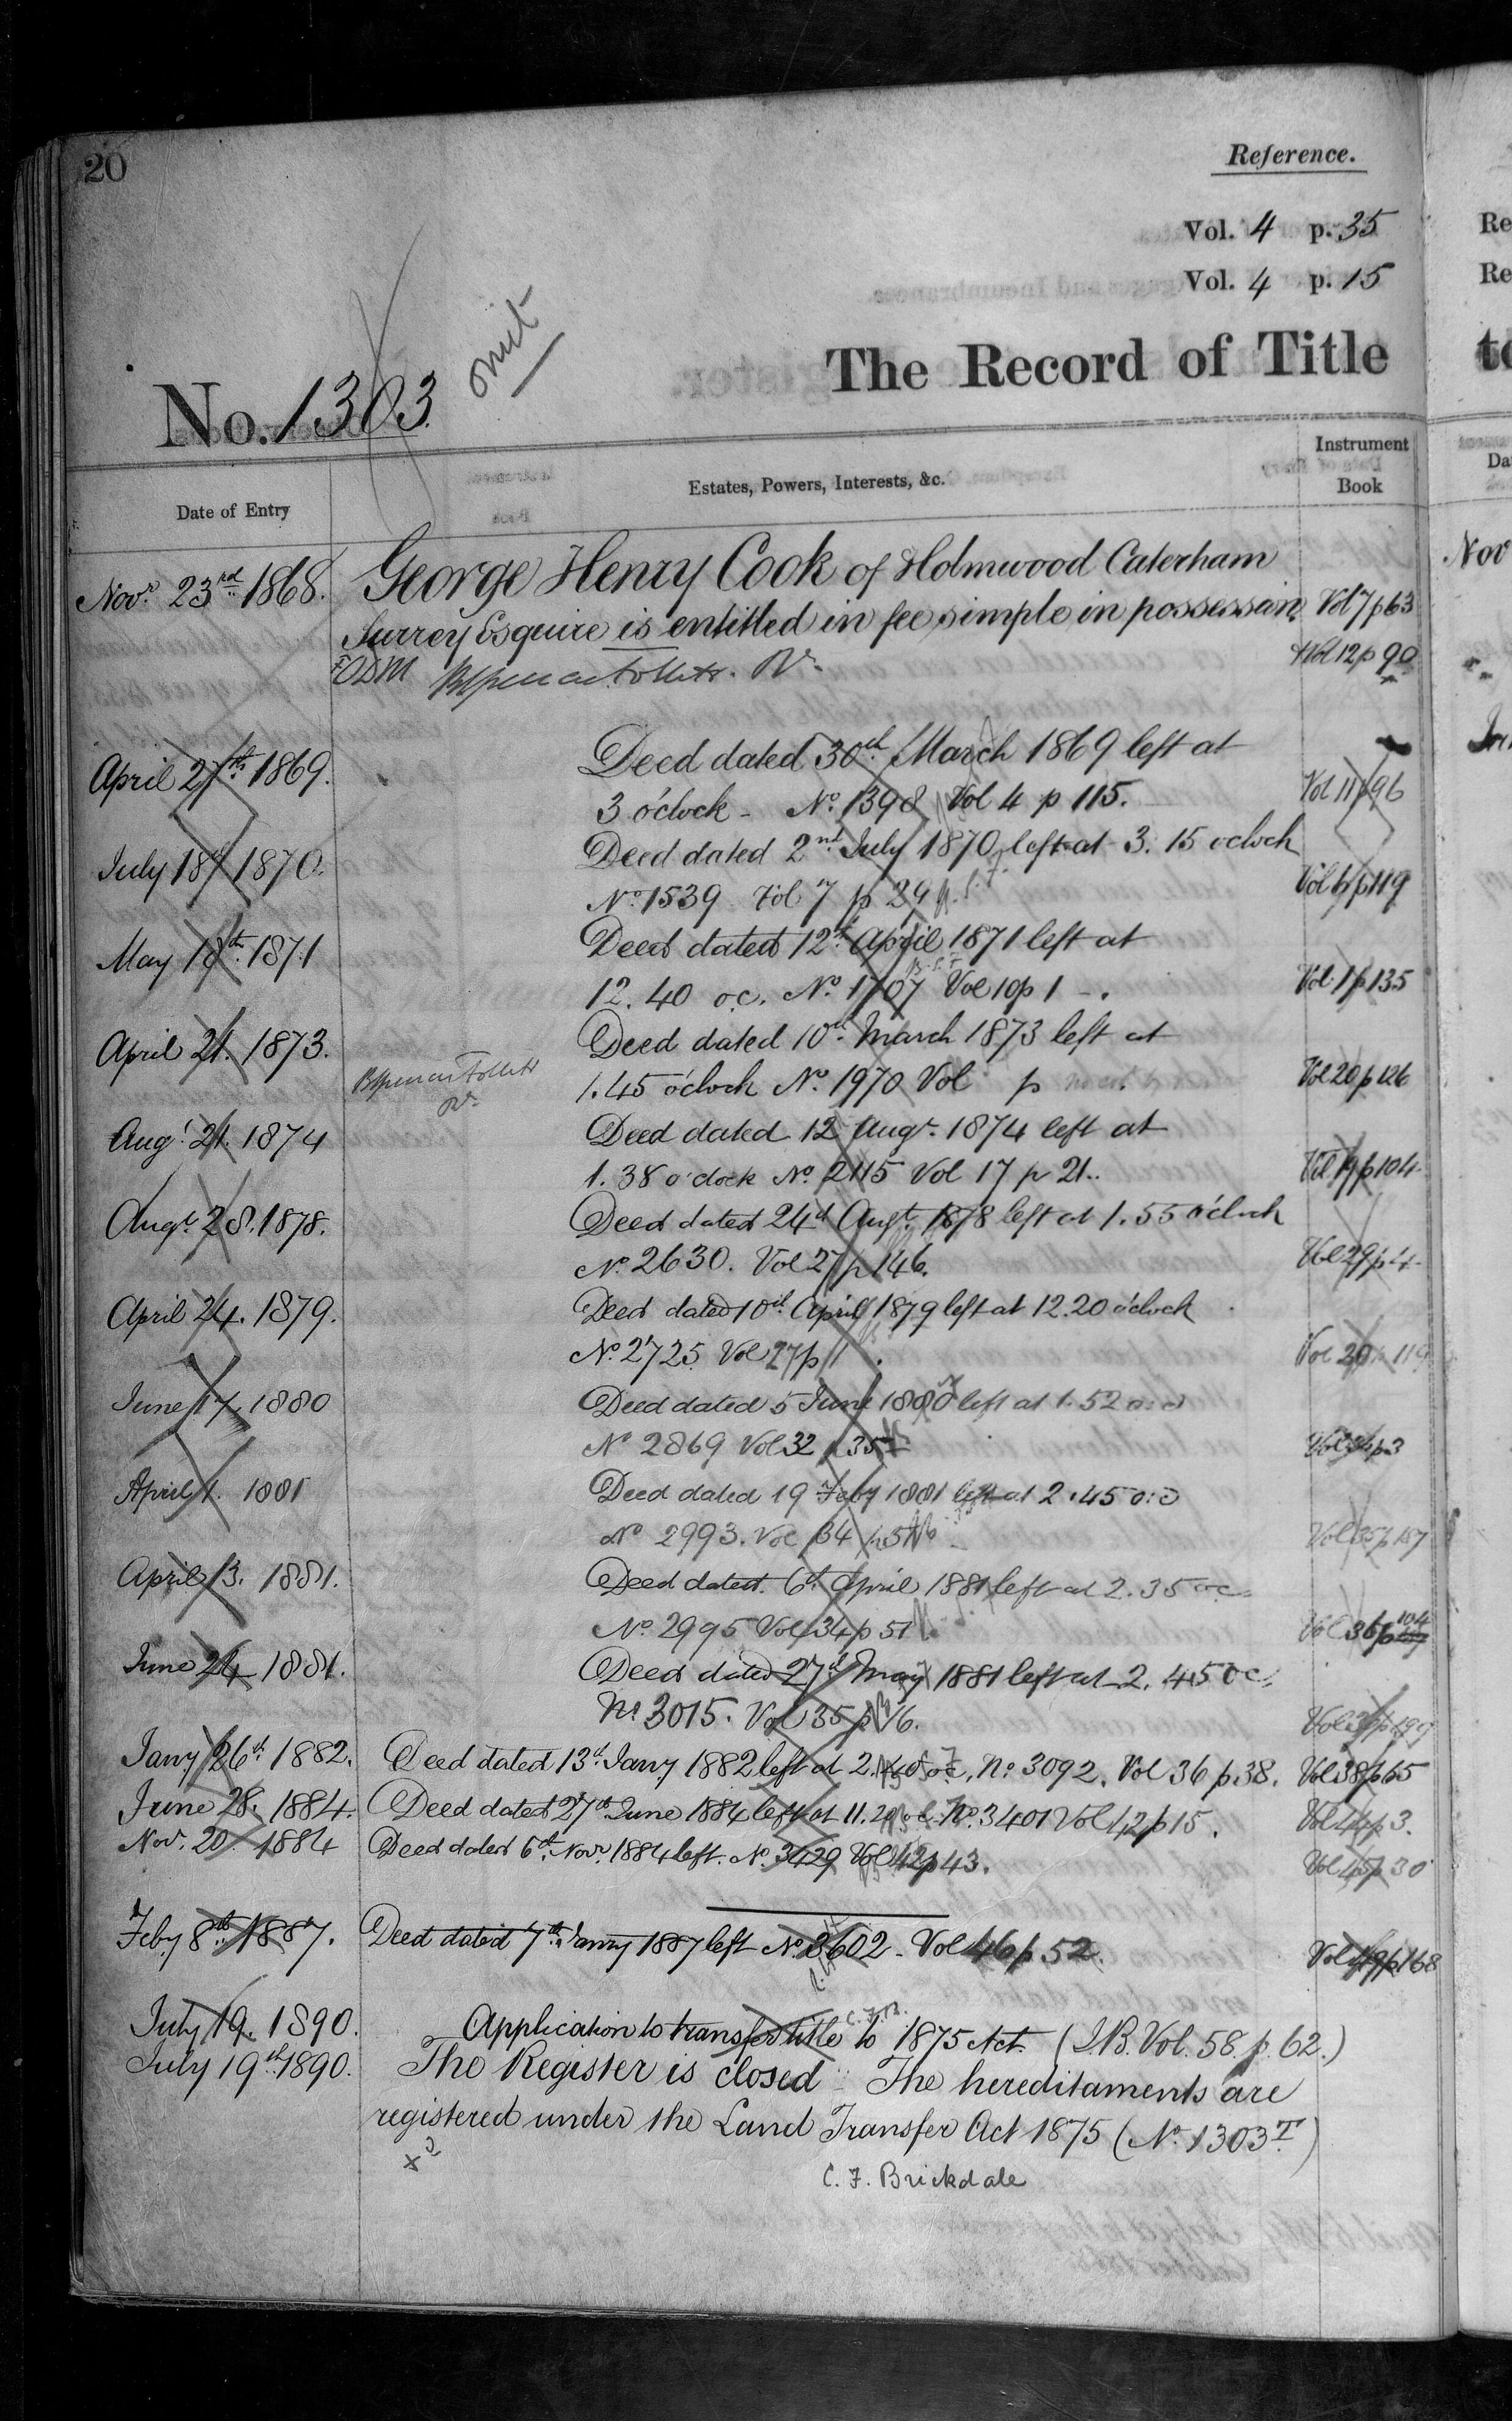 20
Reference.
Vol. 4 p. 35
Vol. 4 p. 15
omit
The Record of Title
No. 1303.
Date of Entry
Estates, Powers, Interests, &c.
Instrument Book
Novr. 23rd. 1868. George Henry Cook of Holmwood Caterham
Surrey Esquire is entitled in fee simple in possession. Vol 7 p 63
Vol 12 p 90
April 27th. 1869. Deed dated 30th. March 1869 left at
3 o'clock - No. 1398 Vol 4 p 115. Vol 11 p 96
July 18 1870. Deed dated 2nd. July 1870 left at 3. 15 o'clock
No. 1539 Vol 7 p 29 p 119
May 18th. 1871 Deed dated 12th. April 1871 left at
12. 40 o.c. No. 1707 Vol 10 p 1 - . p 135
April 21. 1873. Deed dated 10th. March 1873 left at
1.45 o'clock No. 1970 Vol p Vol 20 p 126
Augt. 21. 1874 Deed dated 12 Augt. 1874 left at
1. 38 o'clock No. 2115 Vol 17 p 21.. Vol 19 p 104
Augt. 28. 1878. Deed dated 24th Augt. 1878 left at 1. 55 o'clock
No. 2630. Vol 27 p 146. Vol 29 p 4
April 24. 1879. Deed dated 10th April 1879 left at 12.20 o'clock
No. 2725 Vol 27 p 1 . Vol 29 p 119
June 17. 1880 Deed dated 5 June 1880 left at 1. 52 o:c
No 2869 Vol 32 p 35 Vol 34 p 3
April 1. 1881 Deed dated 19 Feby 1881 left at 2.45 o:c
No 2993. Vol 34 p 51 Vol 35 p 187
April 13. 1881. Deed dated 6th. April 1881 left at 2.35 oc
No. 2995 Vol 34 p 51 Vol 36 p 104
June 24 1881. Deed dated 27th May 1881 left at 2. 45 oc.
No. 3015. Vol 35 p 16. Vol 36 p 199
Jany 26th. 1882. Deed dated 13th. Jany 1882 left at 2. 40 oc, No. 3092. Vol 36 p 38. Vol 38 p 65
June 28. 1884. Deed dated 27th June 1884 left at 11. 20 oc No. 3401 Vol 42 p 15. Vol 44 p 3.
Novr. 20. 1884 Deed dated 6th. Novr. 1884 left. No. 3429 Vol 42 p 43. Vol 45 p 30
Feby 8th. 1887. Deed dated 7th. Jany 1887 left No. 3602 - Vol 46 p 52. Vol 49 p 168
July 19. 1890. Application to transfer title to 1875 Act. (I.B. Vol. 58. p. 62.)
July 19th. 1890. The Register is closed - The hereditaments are
registered under the Land Transfer Act 1875 (No. 1303T.)
C. F. Brickdale